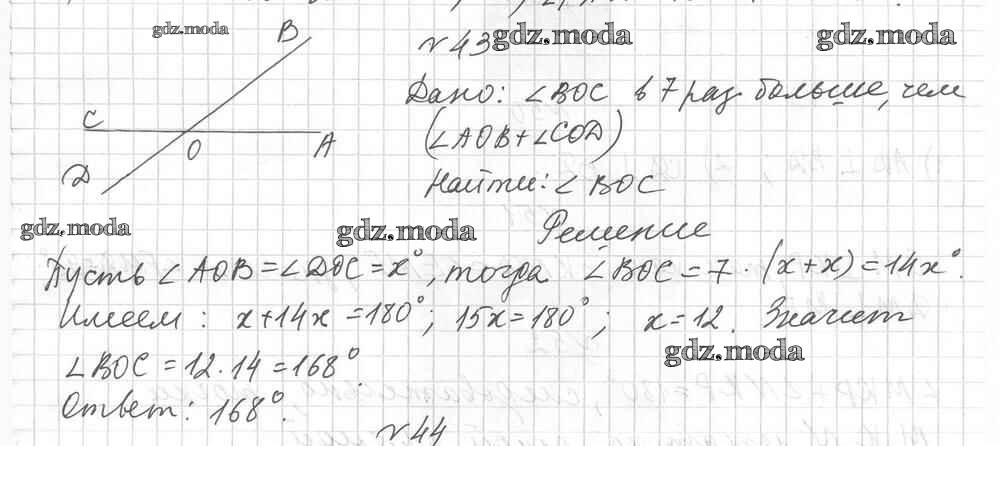 gdz.moda
B
C
O
A
D
№43
gdz.moda
gdz.moda
Дано: ∠BOC в 7 раз больше, чем
(∠AOB+∠COD)
Найти: ∠BOC
gdz.moda
gdz.moda
Решение
Пусть ∠AOB=∠DOC=x°, тогда ∠BOC=7·(x+x)=14x°.
Имеем: x+14x=180°; 15x=180°; x=12. Значит
gdz.moda
∠BOC=12·14=168°.
Ответ: 168°.
№44